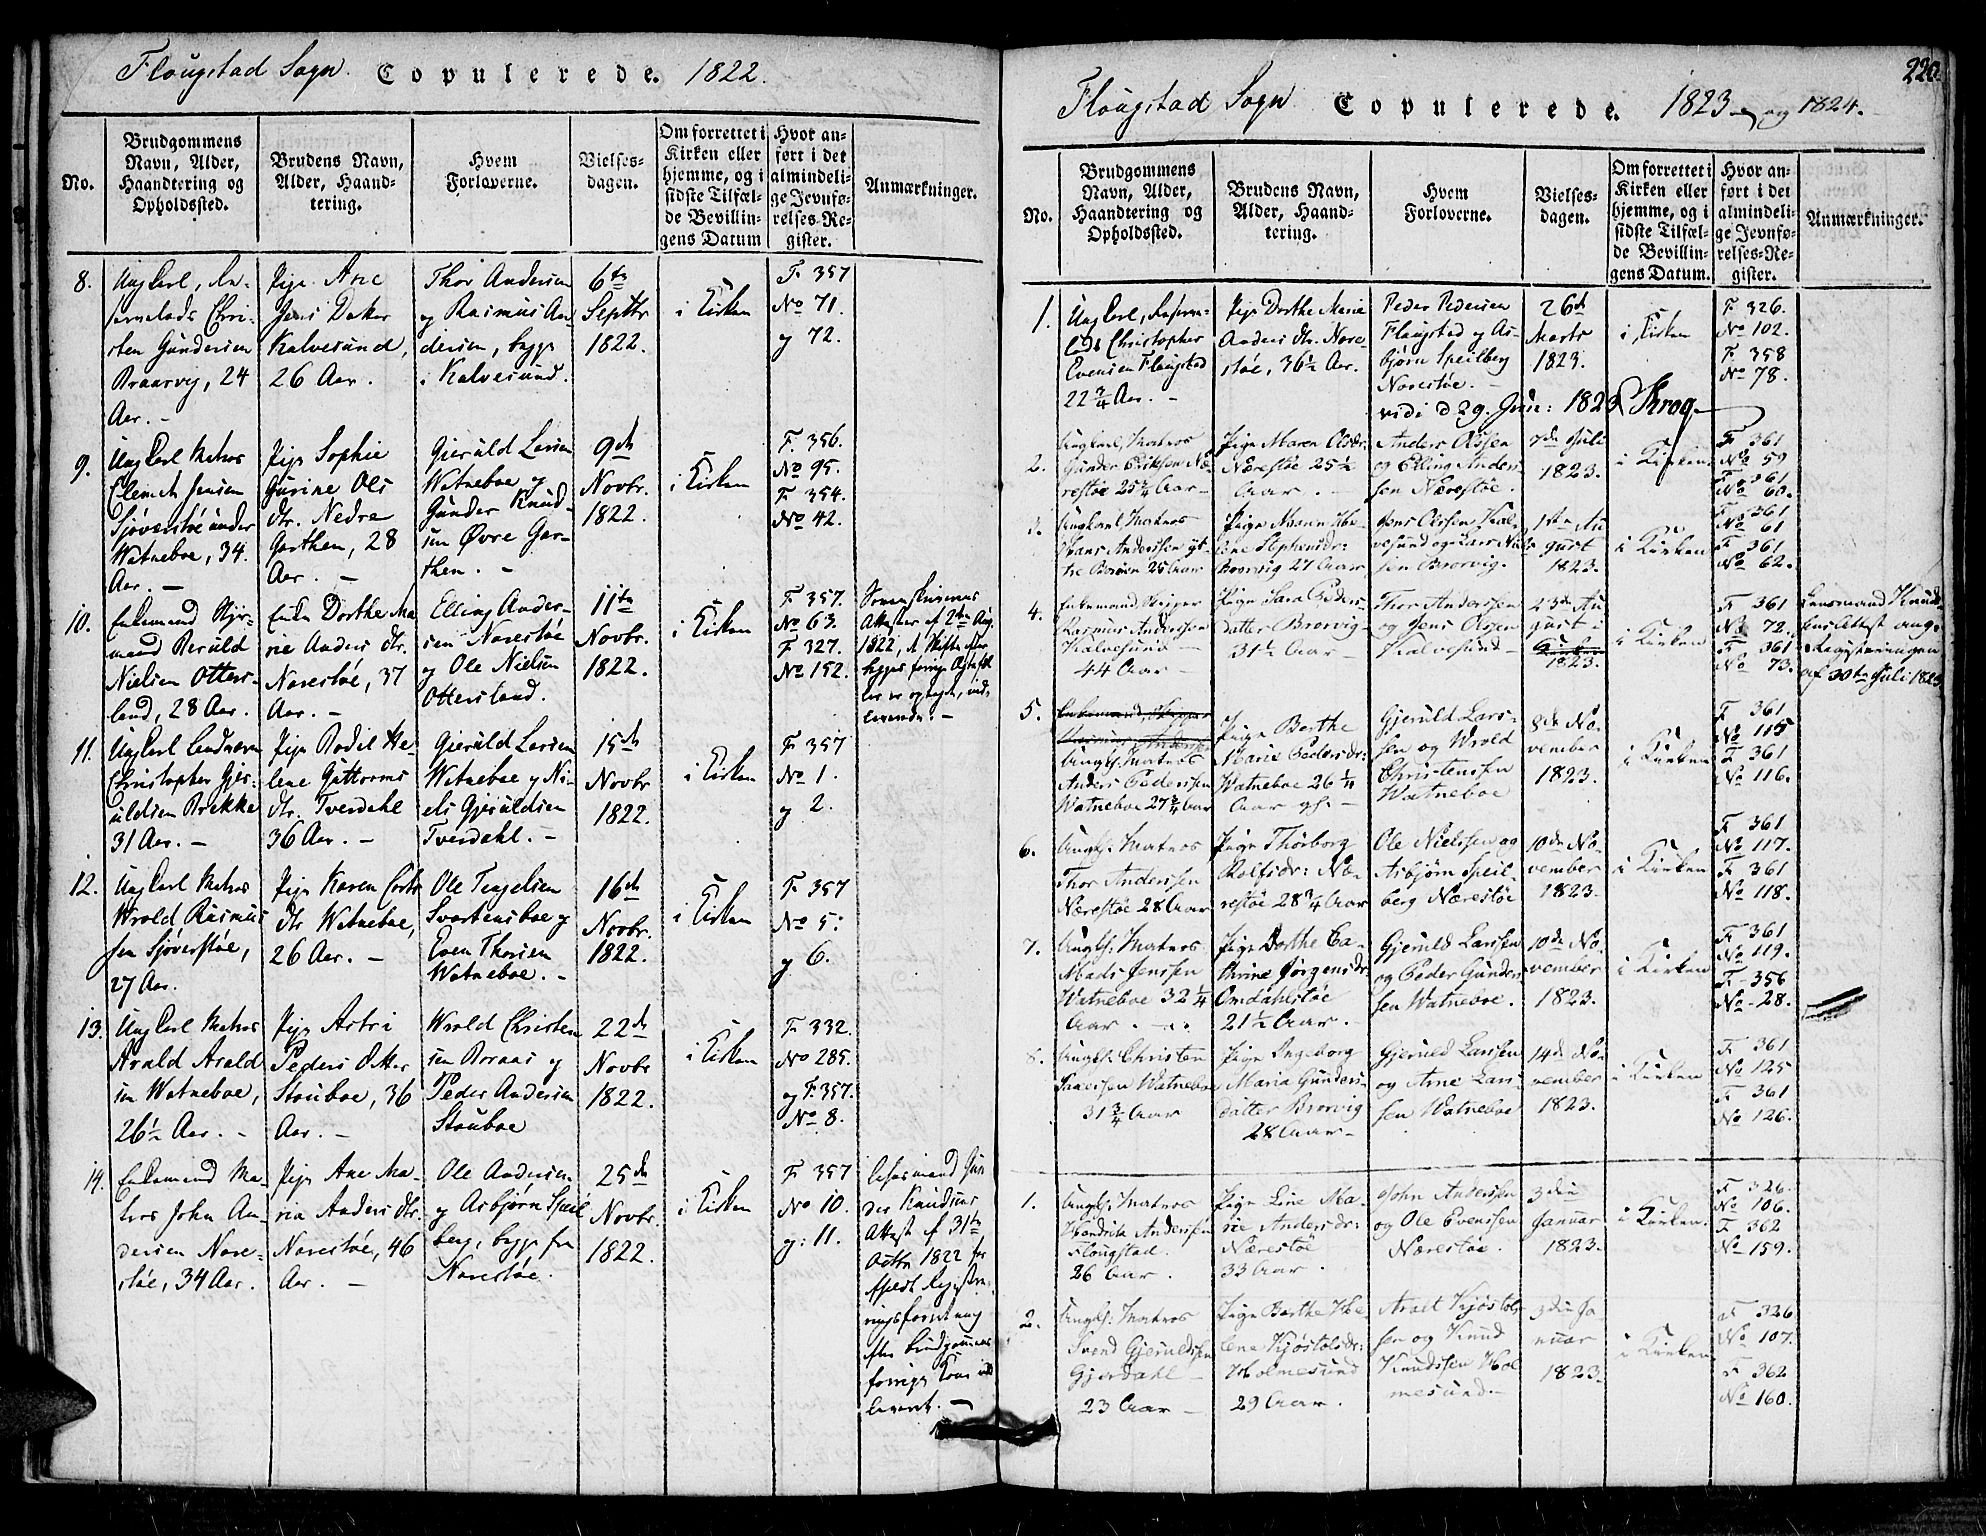 Flougstad Sogn. Copulerede. 1822.
No.
Brudgommens
Navn, Alder,
Haandtering og
Opholdssted.
Brudens Navn,
Alder, Haand-
tering.
Hvem
Forloverne.
Vielses-
dagen.
Om forrettet i
Kirken eller
hjemme, og i
sidste Tilfæl-
de Bevillin-
gens Datum
Hvor an-
ført i det
almindeli-
ge Jevnfø-
relses-Re-
gister.
Anmærkninger.
8.
Ung Carl,
Chri-
sten Gundersen
Braarvig, 24
Aar. -
Pige Ane
Jens Datter
Kalvesund,
26 Aar.
Thor Andersen
og Rasmus An-
dersen, begge
i Kalvesund.
6te
Septbr
1822.
i Kirken
F. 357
No 71.
og 72.
9.
Ung Carl Matros
Clemet Jensen
Sjøverstøe under
Watneboe, 34.
Aar. -
Pige Sophie
Gurine Ols
dtr. Nedre
Garthen, 28
Aar. -
Gieruld Larsen
Watneboe og
Gunder Knud-
sen Øvre Gar-
then. -
9de
Novbr.
1822.
i Kirken
F. 356.
No 95.
F. 354.
No 42.
10.
Enkemand Styr-
mand Beruld
Nielsen Otters-
land, 28 Aar.
Enke Dorthe Ma-
rie Anders dtr.
Narestøe, 37
Aar. -
Elling Ander-
sen Narestøe
og Ole Nielsen
Ottersland.
11te
Novbr.
1822.
i Kirken
F. 357.
No 63.
F. 327.
No 152.
Attester af 2den Aug.
1822, at Skifte efter
11.
Ung Carl
Christopher Gjer-
uldsen Brekke
31 Aar. -
Pige Bodil He-
lene Guttorms
dtr. Tverdahl
36 Aar. -
Gieruld Larsen
Watneboe og Ni-
els Gjeruldsen
Tverdahl. -
15de
Novbr
1822.
i Kirken
F. 357
No 1.
og 2.
12.
Ung Carl Matros
Wrold Rasmus
sen Sjøverstøe,
27 Aar.
Pige Karen
dtr. Watneboe,
26 Aar. -
Ole Tengelsen
Svartensboe og
Even Thorsen
Watneboe. -
16de
Novbr.
1822.
i Kirken
F. 357
No 5.
og 6.
13.
Ung Carl Matros
Arald Arald
sen Watneboe,
26½ Aar. -
Pige Astri
Peders Dtter
Stouboe, 36
Aar. -
Wrold Christen
sen Boraas og
Peder Andersen
Stouboe
22de
Novbr
1822.
i Kirken
F. 332.
No 285.
og F. 357.
No 8.
14.
Enkemand Ma-
tros John An-
dersen Nare-
støe, 34 Aar.
Pige Ane Ma-
ria Anders dtr.
Narestøe, 46
Aar. -
Ole Andersen
og Asbjørn Speil
berg, begge fra
Narestøe.
25de
Novbr.
1822.
i Kirken
F. 357
No 10.
og: 11.
Lensmand Gun
der Knudsens
Attest af 31te
Octbr 1822 for
efter Brudgommens
forrige Kone
leveret. -
220
Flougstad Sogn. Copulerede. 1823 - og 1824.
No.
Brudgommens
Navn, Alder,
Haandtering og
Opholdssted.
Brudens Navn,
Alder, Haand-
tering.
Hvem
Forloverne.
Vielses-
dagen.
Om forrettet i
Kirken eller
hjemme, og i
sidste Tilfæl-
de Bevillin-
gens Datum.
Hvor an-
ført i det
almindeli-
ge Jevnfø-
relses-Re-
gister.
Anmærkninger.
1.
Ung Carl,
Christopher
Evensen Flougstad
22 3/4 Aar. -
Pige Dorthe Marie
Anders dtr. Nare-
støe, 36½ Aar.
Peder Pedersen
Flaugstad og As-
bjørn Speilberg
Narestøe. -
26de
Marts
1823.
i Kirken
F 326.
No 102.
F. 358
No 78.
vidi d 29. Jun: 1823 Krog
2.
Ungkarl, Matros
Gunder Eriksen Næ-
restøe 25¾ Aar
Pige Maren Olsdr:
Nærestøe 25½
Aar. -
Anders Olssen
og Elling Anders-
sen Nærestøe.
7de Juli
1823.
i Kirken
F 361
No 59
F 361
No 60.
3.
Ungkarl, Matros
Hans Anderssen yt-
tre Borøen 25 Aar
Pige Maren He-
lene Stephensdr:
Brorvig 27 Aar,
Jens Olssen Kal-
vesund og Lars Niels
sen Brorvig.
1ste Au
gust
1823.
i Kirken
F 361
No 61
F 361
No 62.
4.
Enkemand Skipper
Rasmus Anderssen
Kalvesund
44 Aar -
Pige Sara Peders-
datter Brorvig
31½ Aar -
Thor Anderssen
og Jens Olssen
Kalvesund -
23de Au
gust i
Kirken
1823.
i Kirken
F 361
No 72.
F 361
No 73.
Lensmand Knud-
sens Attest ang.
Registeringen
af 30te Juli 1823
5.
Enkemand, Skipper
Rasmus Anderssen
Ungk: Matros
Anders Pederssen
Watneboe 27¾ Aar
Pige Berthe
Marie Pedersdr:
Watneboe 26¼
Aar gl. -
Gjeruld Lars-
sen og Wrold
Christenssen
Watneboe
8de No-
vember
1823.
i Kirken
F 361
No 115
F 361
No 116.
6.
Ungk: Matros
Thor Anderssen
Nærestøe 28 Aar
Pige Thorborg
Rolfsdr: Næ-
restøe 28¾ Aar
Ole Nielssen og
Asbjørn Speil-
berg Nærestøe
10de No-
vember
1823.
i Kirken
F 361
No 117.
F 361
No 118.
7.
Ungk: Matros
Mads Jenssen
Watneboe 32¼
Aar. -
Pige Dorthe Ca-
thrine Jørgensdr:
Omdahlstøe
21½ Aar.
Gjeruld Larssen
og Peder Gunders-
sen Watneboe.
10de No-
vember
1823.
i Kirken
F 361
No 119.
F 356
No 28.
8.
Ungk: Christen
Watneboe
31¾ Aar
Pige Ingeborg
Maria Gunders-
datter Brorvig
28 Aar -
Gjeruld Larssen
og Arne Lars-
sen Watneboe
14de No-
vember
1823.
i Kirken
F 361
No 125
F 361
No 126.
1.
Ungk: Matros
Hendrik Anderssen
Flougstad.
26 Aar.
Pige Line Ma-
rie Andersdr:
Nærestøe
33 Aar.
John Anderssen
og Ole Evenssen
Nærestøe.
3die
Januar
1823.
i Kirken.
F 326.
No 106.
F 362
No 159.
2.
Ungk: Matros
Svend Gjeruldssen
Gjerdahl -
23 Aar -
Pige Berthe He-
lene Kjøstolsdr:
Holmesund
29 Aar.
Aralt Kjøstols
sen og Knud
Knudssen Hol
mesund. -
3die Ja
nuar
1823.
i Kirken
F 326
No 107.
F 362
No 160.